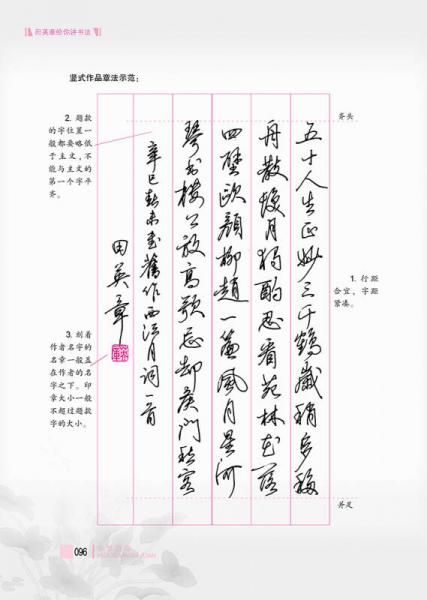 田英章给你讲书法
竖式作品章法示范：
齐头
五十人生正妙三千鶴歲稍多移
舟散懷月獨酌忍看苑林花落
四壁歐顏柳趙一簾風月星河
琴书樓上放高歌忘却侯門
辛巳秋末書舊作西江月詞一首
田英章
1. 行距
合宜，字距
紧凑。
2. 题款
的字位置一
般都要略低
于主文，不
能与主文的
第一个字平
齐。
3. 刻着
作者名字的
名章一般盖
在作者的名
字之下。印
章大小一般
不超过题款
字的大小。
并足
096